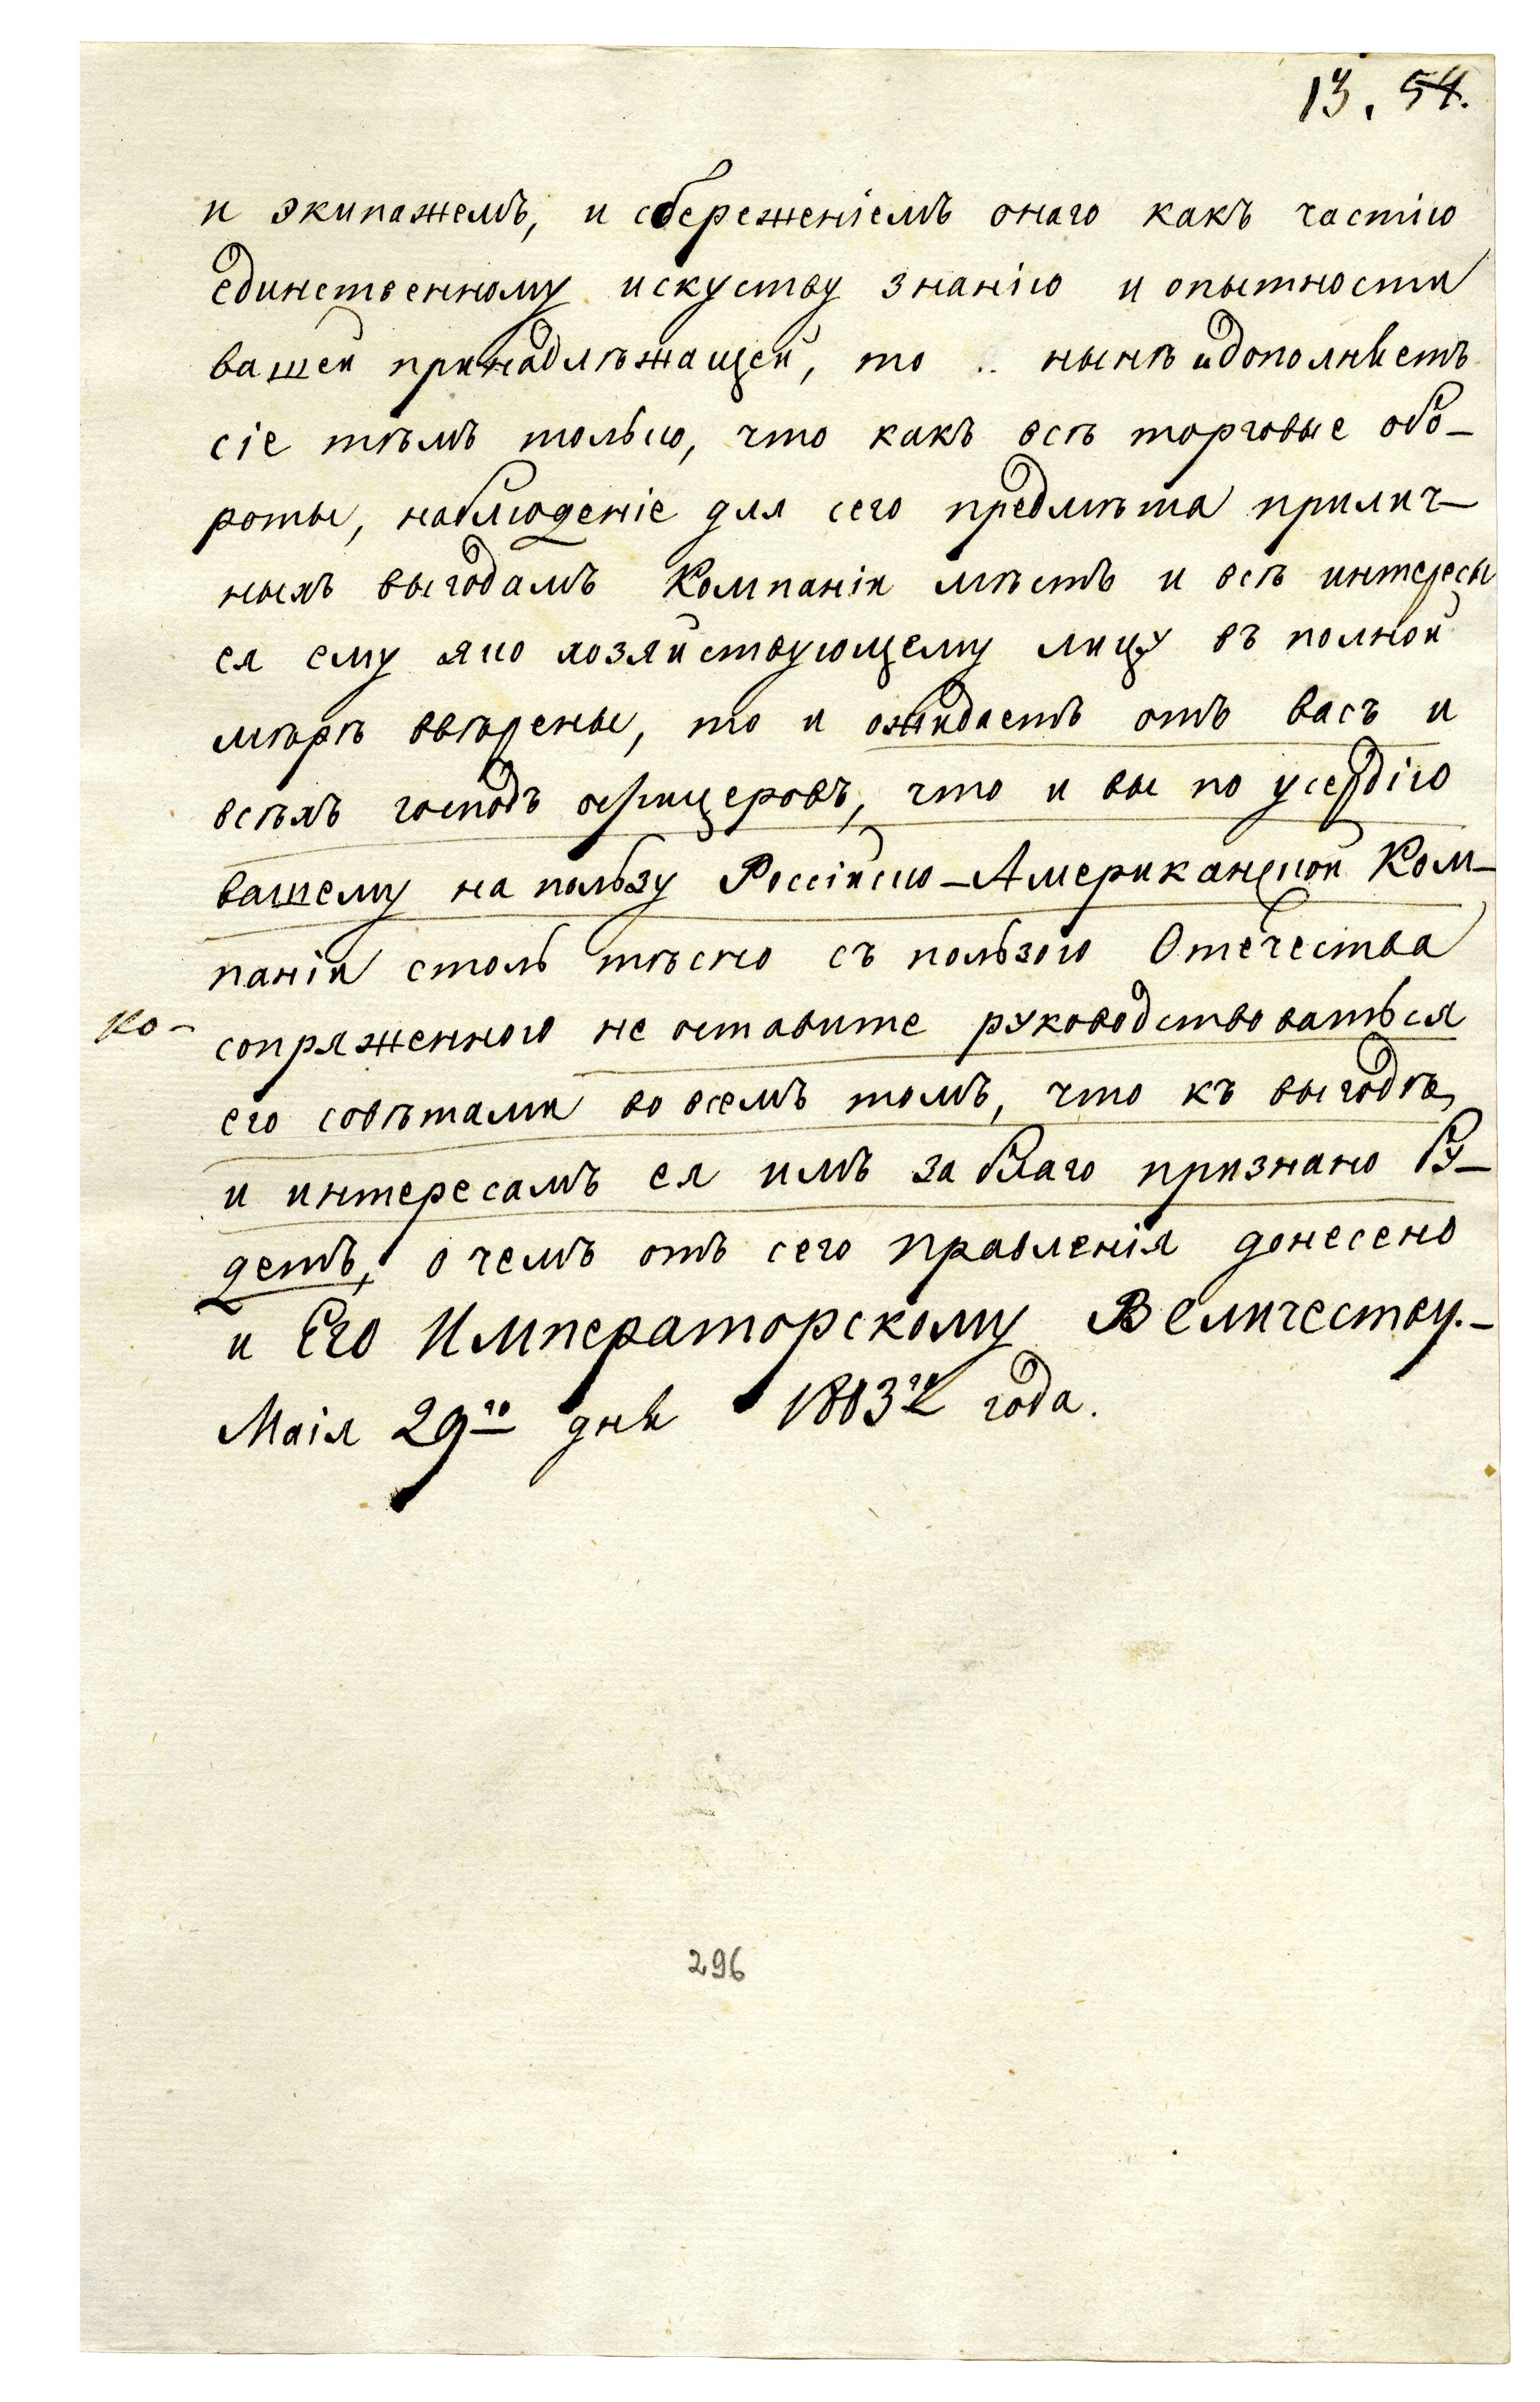 13. 54.
и экипажемъ, и сбереженіемъ онаго какъ частію
единственному искуству знанію и опытности
вашей принадлѣжащей, то .. нынѣ и дополняетъ
сіе тѣмъ только, что какъ всѣ торговые обо-
роты, наблюденіе для сего предмѣта прилич-
ныхъ выгодамъ Компаніи мѣстъ и всѣ интересы
ея ему яко хозяйствующему лицу въ полной
мѣрѣ ввѣрены, то и ожидаетъ отъ васъ и
всѣхъ господъ офицеровъ, что и вы по усердію
вашему на пользу Россійско-Американской Ком-
паніи столь тѣсно съ пользою Отечества
ко-
сопряженного не оставите руководствоваться
его совѣтами во всемъ томъ, что къ выгодѣ,
и интересамъ ея имъ за благо признано бу-
детъ, о чемъ отъ сего правленія донесено
и Его Императорскому Величеству.-
Маія 29го дня 1803го года.
296